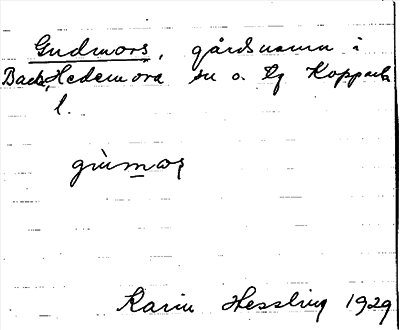 Gudmors, gårdsnamn i
Backa, Hedemora sn o. tg Kopparb
l.
gùmos
Karin Hessling 1929